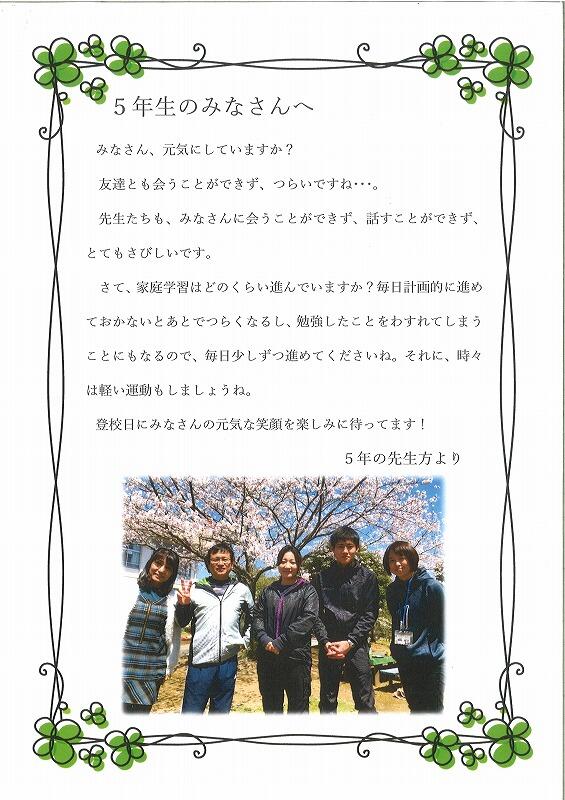 ５年生のみなさんへ
みなさん、元気にしていますか？
友達とも会うことができず、つらいですね･･･。
先生たちも、みなさんに会うことができず、話すことができず、
とてもさびしいです。
さて、家庭学習はどのくらい進んでいますか？毎日計画的に進め
ておかないとあとでつらくなるし、勉強したことをわすれてしまう
ことにもなるので、毎日少しずつ進めてくださいね。それに、時々
は軽い運動もしましょうね。
登校日にみなさんの元気な笑顔を楽しみに待ってます！
５年の先生方より